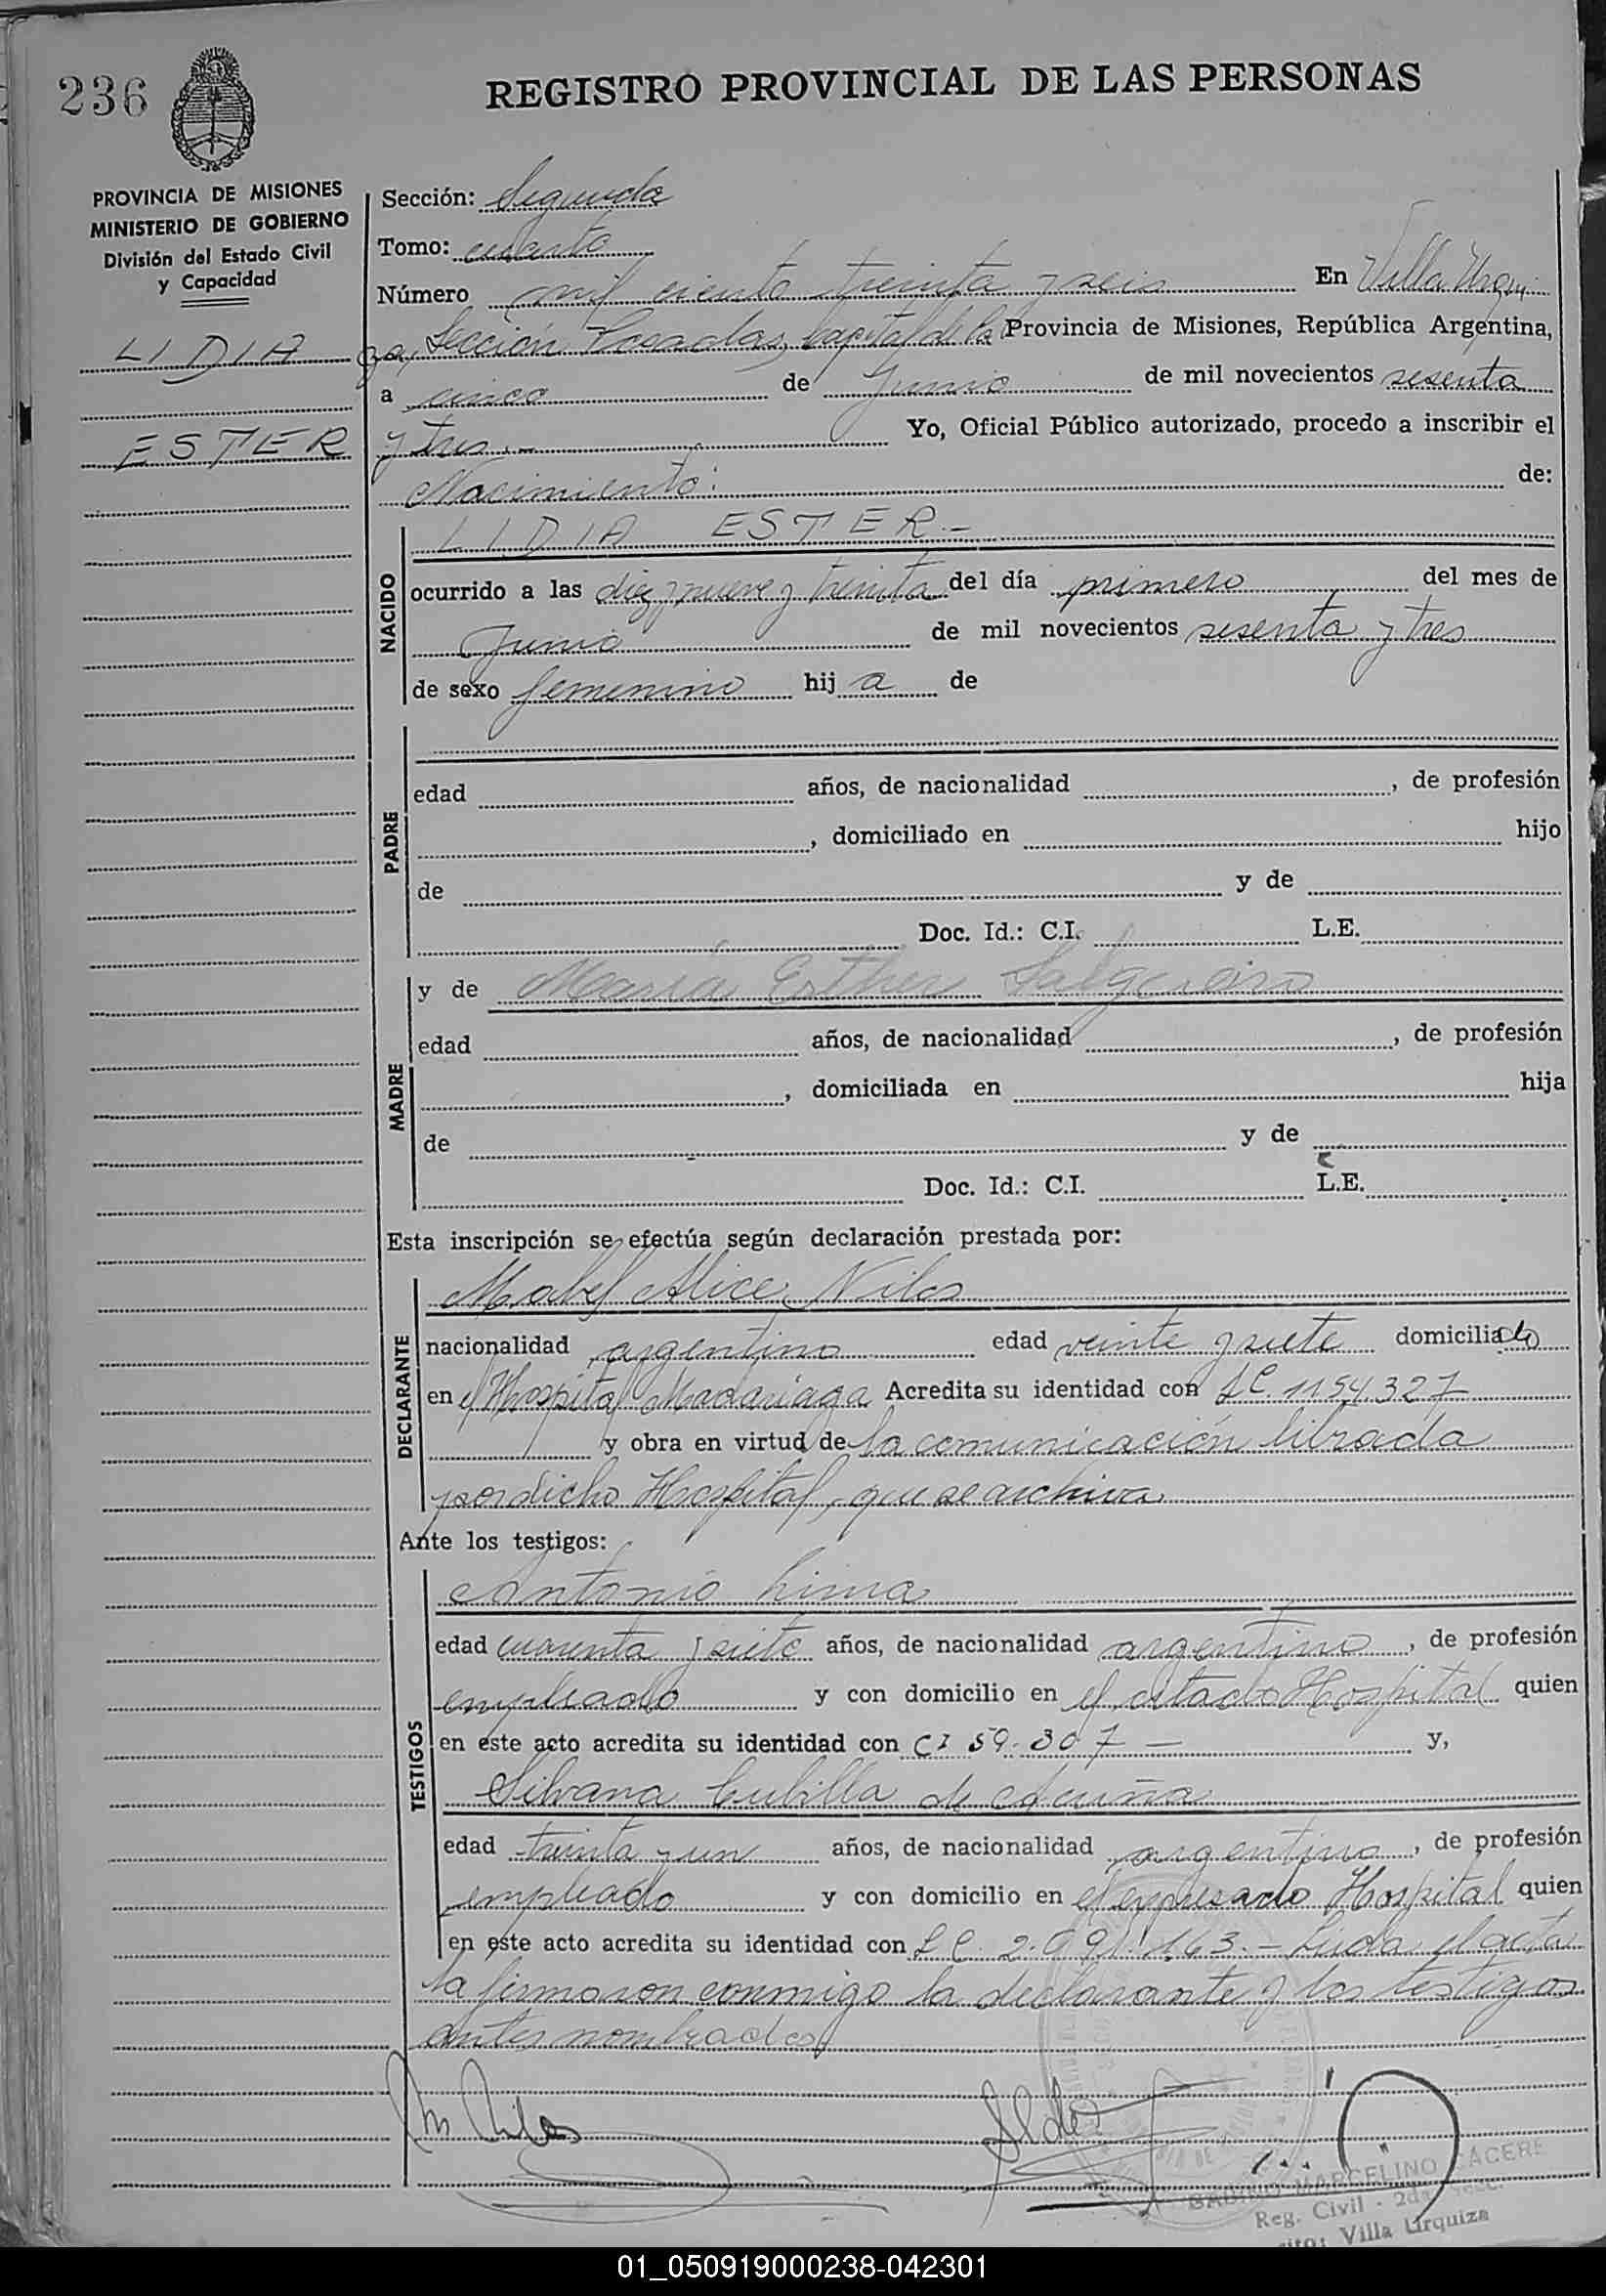 236
REGISTRO PROVINCIAL DE LAS PERSONAS
PROVINCIA DE MISIONES
MINISTERIO DE GOBIERNO
División del Estado Civil
y Capacidad
LIDIA
ESTER
Sección: Segunda
Tomo: cuarto
Número mil ciento treinta y seis En Villa Urqui
za, Sección Posadas, Capital de la Provincia de Misiones, República Argentina,
a cinco de Junio de mil novecientos sesenta
y tres.- Yo, Oficial Público autorizado, procedo a inscribir el
Nacimiento: de:
NACIDO
LIDIA ESTER.-
ocurrido a las diez y nueve y treinta del día primero del mes de
Junio de mil novecientos sesenta y tres
de sexo femenino hij a de
PADRE
edad años, de nacionalidad , de profesión
, domiciliado en hijo
de y de
Doc. Id.: C.I. L.E.
MADRE
y de María Esther
edad años, de nacionalidad , de profesión
, domiciliada en hija
de y de
Doc. Id.: C.I. L.E.
Esta inscripción se efectúa según declaración prestada por:
DECLARANTE
Mabel Alice
nacionalidad argentino edad veinte y siete domiciliado
en el Hospital Madariaga Acredita su identidad con LC. 1154327
y obra en virtud de la comunicación librada
por dicho Hospital, que se archiva
Ante los testigos:
TESTIGOS
Antonio Lima
edad cuarenta y siete años, de nacionalidad argentino , de profesión
empleado y con domicilio en el citado Hospital quien
en este acto acredita su identidad con CI 59.307 — y,
Silvana Cubilla de Acuña
edad treinta y un años, de nacionalidad argentino , de profesión
empleado y con domicilio en el expresado Hospital quien
en este acto acredita su identidad con LC. 2.091.163.- Leída el acta
la firmaron conmigo la declarante y los testigos
antes nombrados
MARCELINO CACERE
Reg. Civil - 2da Secc.
Villa Urquiza
01_050919000238-042301